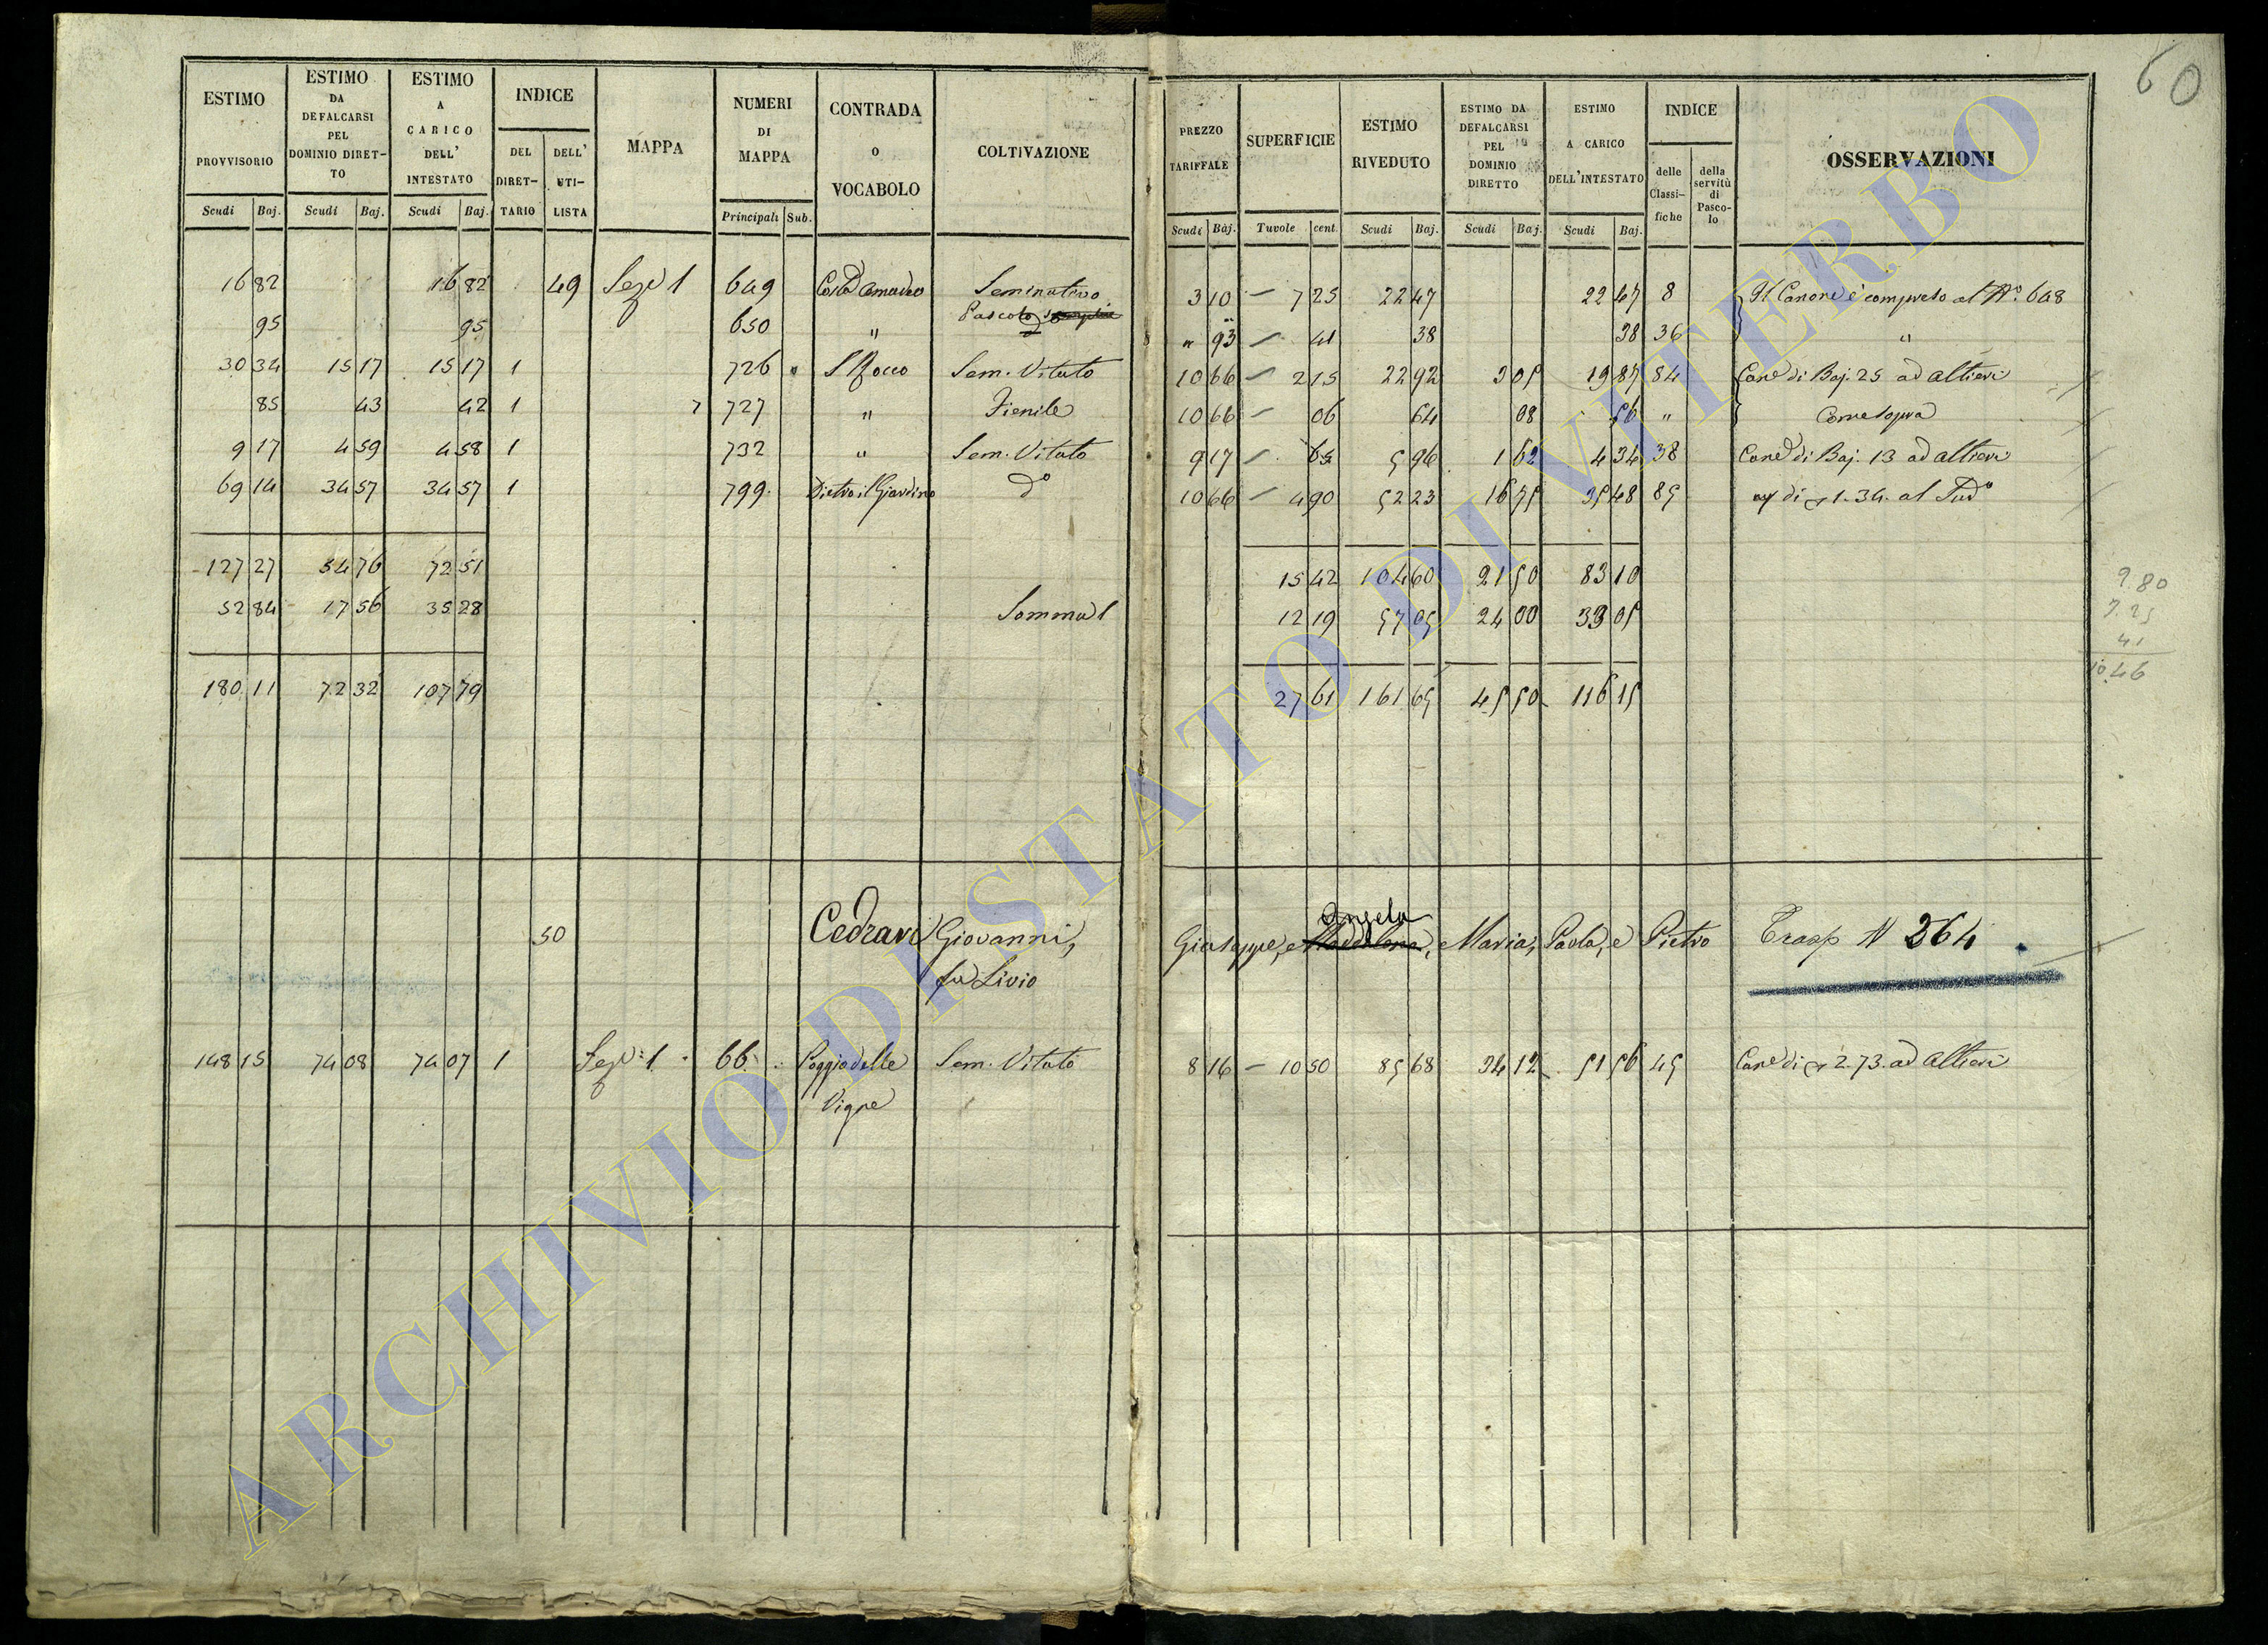 60
ESTIMO PROVVISORIO Scudi Baj.
ESTIMO DA DEFALCARSI PEL DOMINIO DIRETTO Scudi Baj.
ESTIMO A CARICO DELL' INTESTATO Scudi Baj.
INDICE DEL DIRETTARIO DELL' UTILISTA
MAPPA
NUMERI DI MAPPA Principali Sub.
CONTRADA O VOCABOLO
COLTIVAZIONE
PREZZO TARIFFALE Scudi Baj.
SUPERFICIE Tavole cent.
ESTIMO RIVEDUTO Scudi Baj.
ESTIMO DA DEFALCARSI PEL DOMINIO DIRETTO Scudi Baj.
ESTIMO A CARICO DELL'INTESTATO Scudi Baj.
INDICE delle Classifiche della servitù di Pascolo
OSSERVAZIONI
16 82 16 82 49 Seze 1 649 Seminativo 3 10 7 25 22 47 22 47 8 Il Canone è compreso al No. 648
95 95 650 " Pascolo " 93 41 38 38 36 "
30 34 15 17 15 17 1 726 S Rocco Sem. Vitato 10 66 2 15 22 92 3 05 19 87 84 Cane di Baj. 25 ad Altieri
85 43 42 1 727 " Fienile 10 66 06 64 08 56 " Come sopra
9 17 4 59 4 58 1 732 " Sem. Vitato 9 17 65 5 96 1 62 4 34 38 Cane di Baj. 13 ad Altieri
69 14 34 57 34 57 1 799 Dietro il Giardino do 10 66 4 90 52 23 16 75 35 48 85 di 1.34. al Sudo
127 27 54 76 72 51 15 42 104 60 21 50 83 10
52 84 17 56 35 28 Somma 1 12 19 57 05 24 00 33 05
180 11 72 32 107 79 27 61 161 65 45 50 116 15
2 80
7 25
41
10.46
50 Cedrani Giovanni, Giuseppe, Angela Maddalena, Maria, Paola, e Pietro Trasp N 264
fu Livio
148 15 74 08 74 07 1 Seze 1 66 Poggio delle Sem. Vitato 8 16 10 50 85 68 34 12 51 56 45 Cane di 2.73. ad Altieri
Vigne
ARCHIVIO DI STATO DI VITERBO